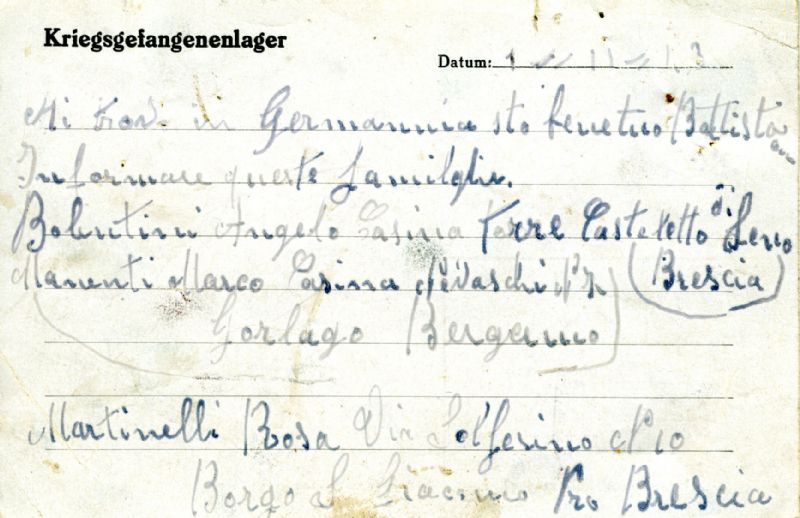 Kriegsgefangenenlager
Datum: 1 - 11 - 43
Mi trovo in Germannia sto benetuo Battista
Informare queste familglie.
Bolentini Angelo Casina torre Casteletto di Leno
Manenti Marco Casina (Brescia)
Gorlago Bergamo
Martinelli Rosa Via Solferino N 10
Borgo S Giacomo Pro Brescia